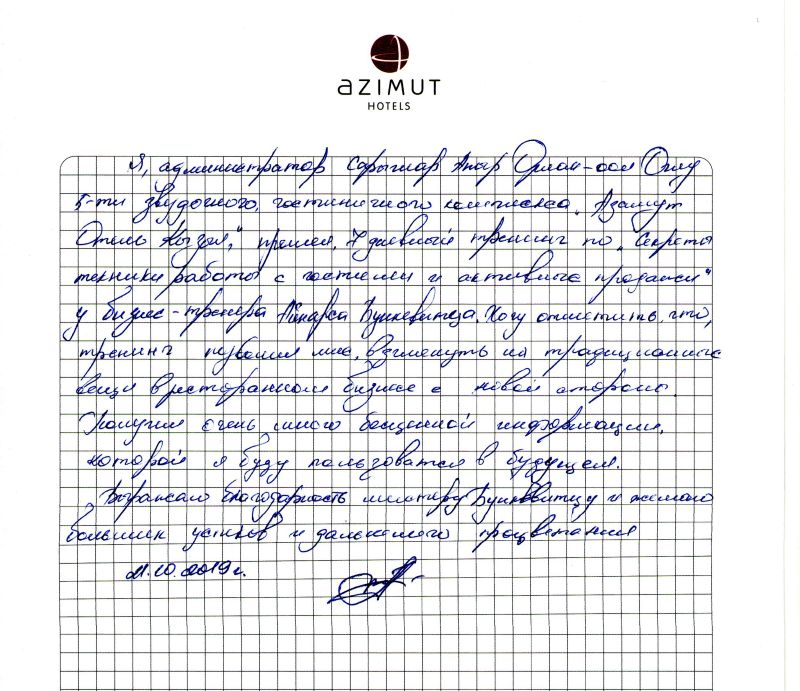 AZIMUT
HOTELS
Я, администратор Сарыглар Оолак-оол Оглу
5-ти звудочного, гостиничного комплекса „Азимут
Отель Кызыл", прошел, 7 дневный тренинг по „Секреты
техники работы с гостеми и активные продажи"
у бизнес-тренера Айнарса Бункевитца. Хочу отметить, что,
тренинг позволил мне, взглянуть на традиционные
вещи в ресторанном бизнесе с новой стороны.
Получил очень много бесценной информации,
которой я буду пользоватся в будущем.
Выражаю благодарность мистеру Бункевитцу и желаю
больших успехов и дальнейшего процветания
21.10.2019г.